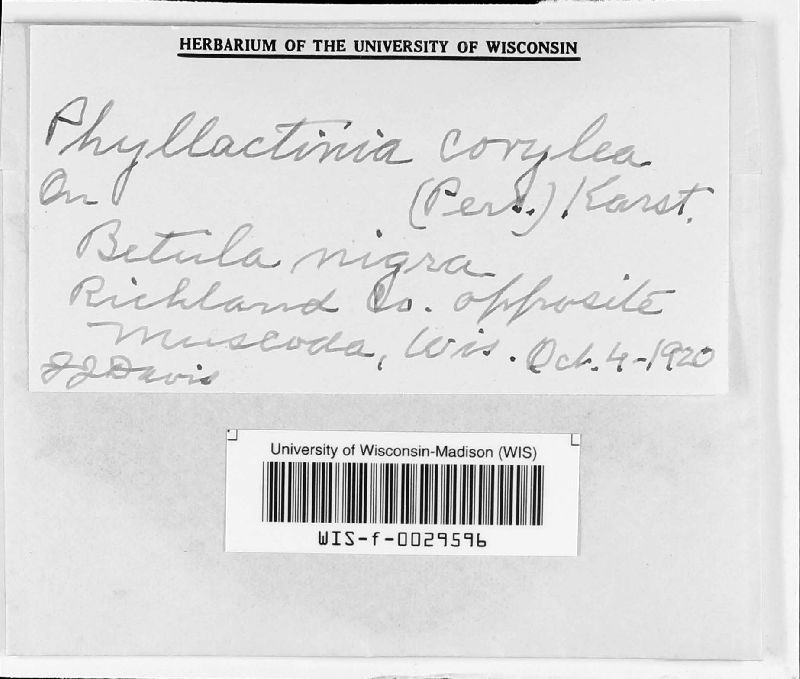 HERBARIUM OF THE UNIVERSITY OF WISCONSIN
Phyllactinia corylea
On (Pers.) Karst.
Betula nigra
Richland Co. opposite
Muscoda, Wis. Oct. 4-1920
JJDavis
University of Wisconsin-Madison (WIS)
WIS-f-0029596